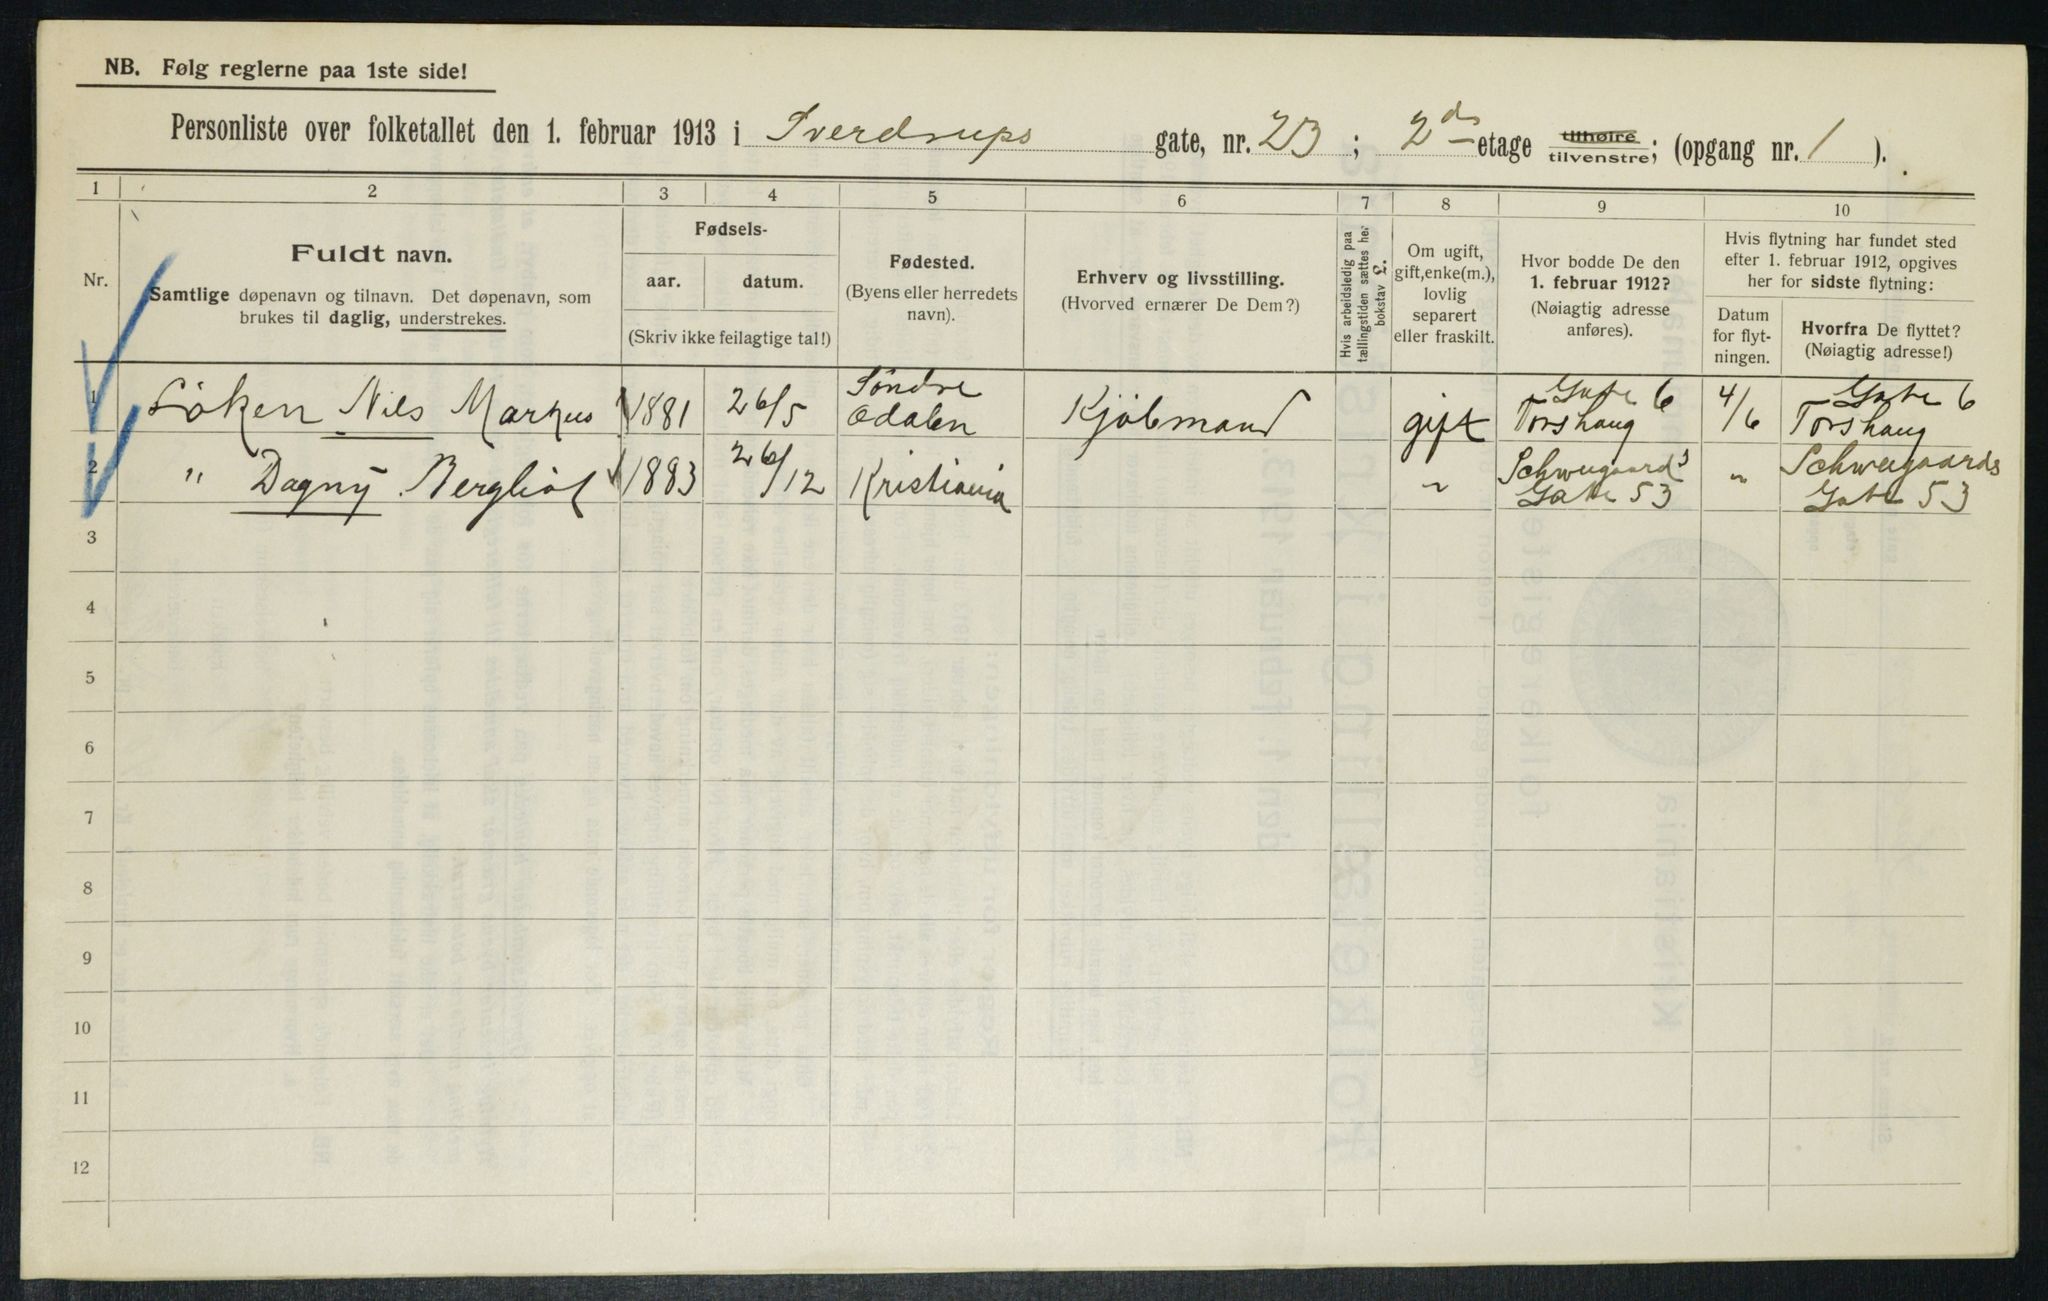 NB. Følg reglerne paa 1ste side!
Personliste over folketallet den 1. februar 1913 i Sverdrups gate, nr. 23 ; 2de etage tilhøire tilvenstre; (opgang nr. 1 ).
1 2 3 4 5 6 7 8 9 10
Nr.
Fuldt navn.
Samtlige døpenavn og tilnavn. Det døpenavn, som
brukes til daglig, understrekes.
Fødsels-
aar. datum.
(Skriv ikke feilagtige tal!)
Fødested.
(Byens eller herredets
navn).
Erhverv og livsstilling.
(Hvorved ernærer De Dem?)
Hvis arbeidsledig paa
tællingstiden sættes her
bokstav L.
Om ugift,
gift, enke(m.),
lovlig
separert
eller fraskilt.
Hvor bodde De den
1. februar 1912?
(Nøiagtig adresse
anføres).
Hvis flytning har fundet sted
efter 1. februar 1912, opgives
her for sidste flytning:
Datum
for flyt-
ningen.
Hvorfra De flyttet?
(Nøiagtig adresse!)
1 Löken Nils Markus 1881 26/5 Söndre Odalen Kjöbmand gift Torshaug Gate 6 4/6 Torshaug Gate 6
2 " Dagny Bergliot 1883 26/12 Kristiania " Schweigaards Gate 53 " Schweigaards Gate 53
3
4
5
6
7
8
9
10
11
12